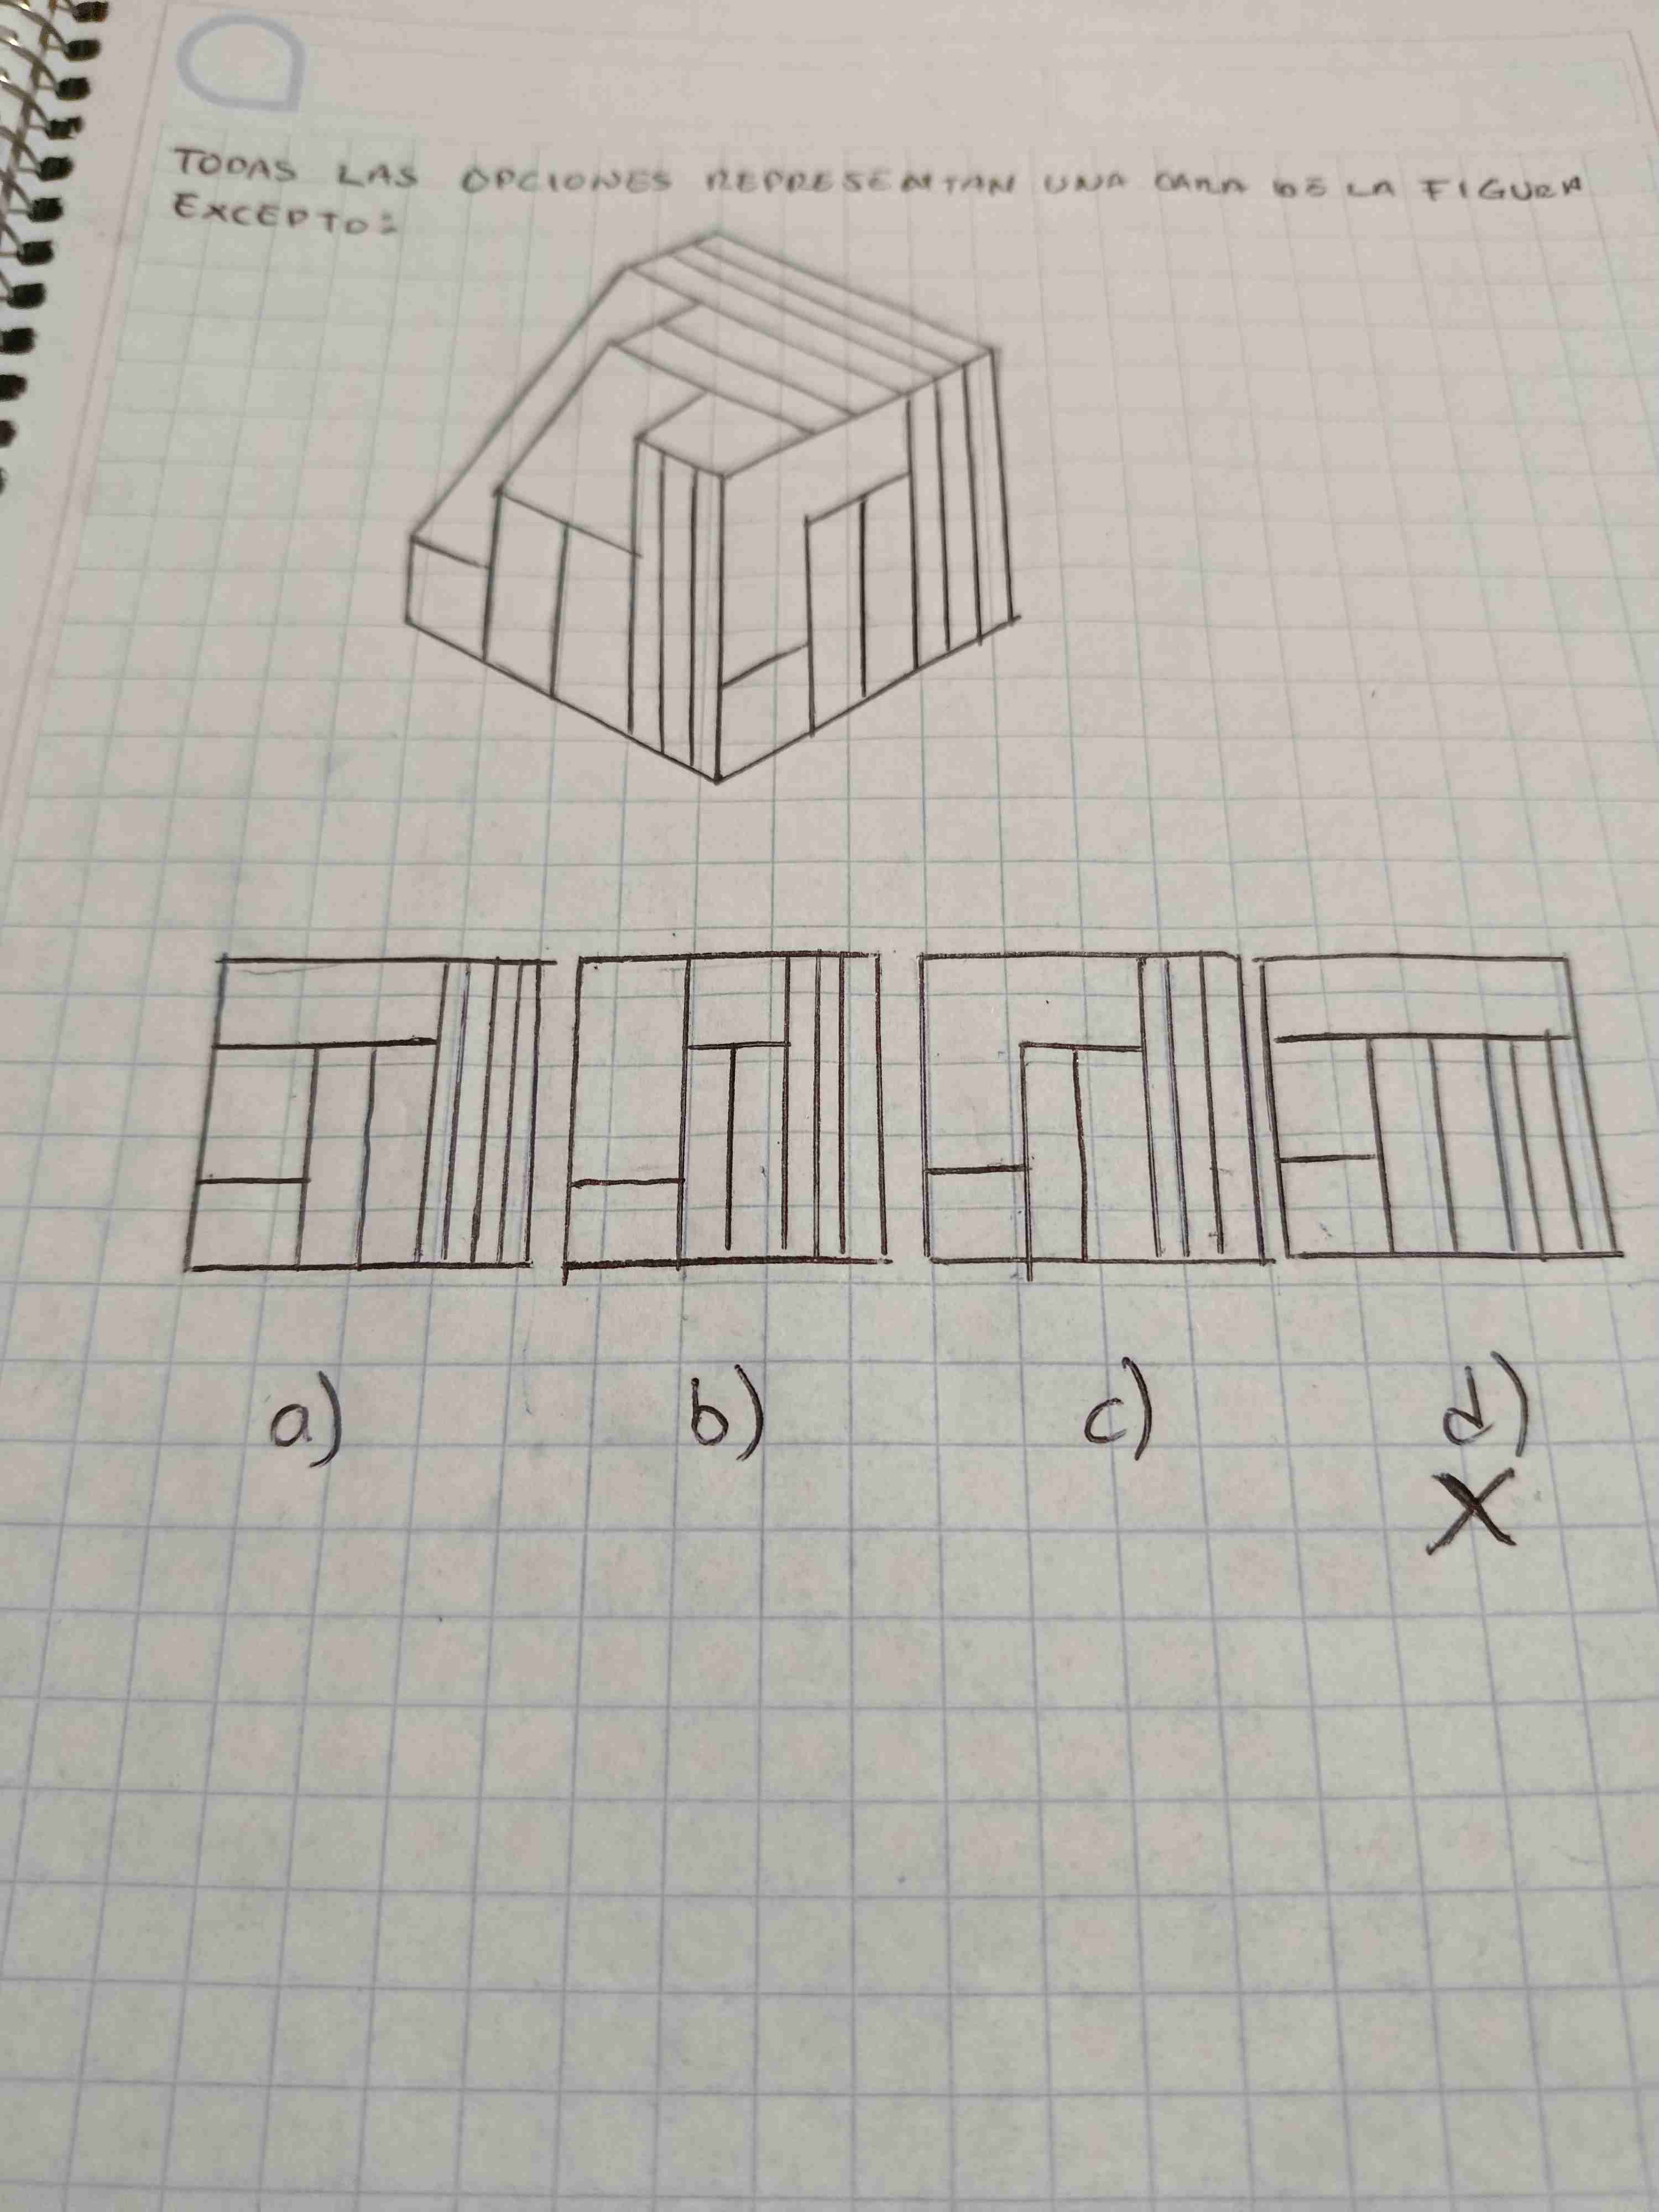 TODAS LAS OPCIONES REPRESENTAN UNA CARA DE LA FIGURA
EXCEPTO:
a) b) c) d)
X